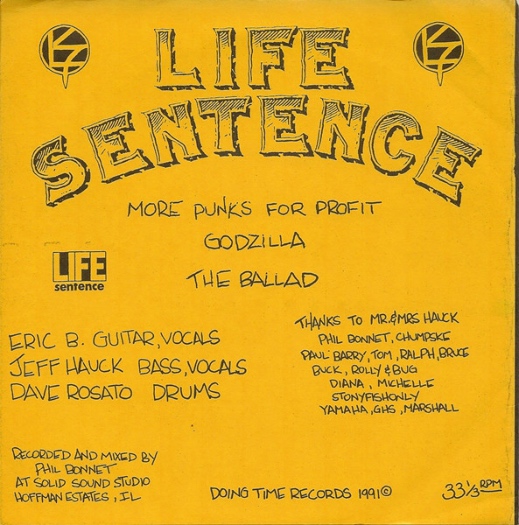 LIFE
SENTENCE
MORE PUNKS FOR PROFIT
GODZILLA
THE BALLAD
LIFE
sentence
ERIC B. GUITAR, VOCALS
JEFF HAUCK BASS, VOCALS
DAVE ROSATO DRUMS
THANKS TO MR.&MRS HAUCK
PHIL BONNET, CHUMPSKE
PAUL BARRY, TOM, RALPH, BRUCE
BUCK, ROLLY & BUG
DIANA, MICHELLE
STONYFISHONLY
YAMAHA, GHS, MARSHALL
RECORDED AND MIXED BY
PHIL BONNET
AT SOLID SOUND STUDIO
HOFFMAN ESTATES, IL
DOING TIME RECORDS 1991©
33⅓ RPM